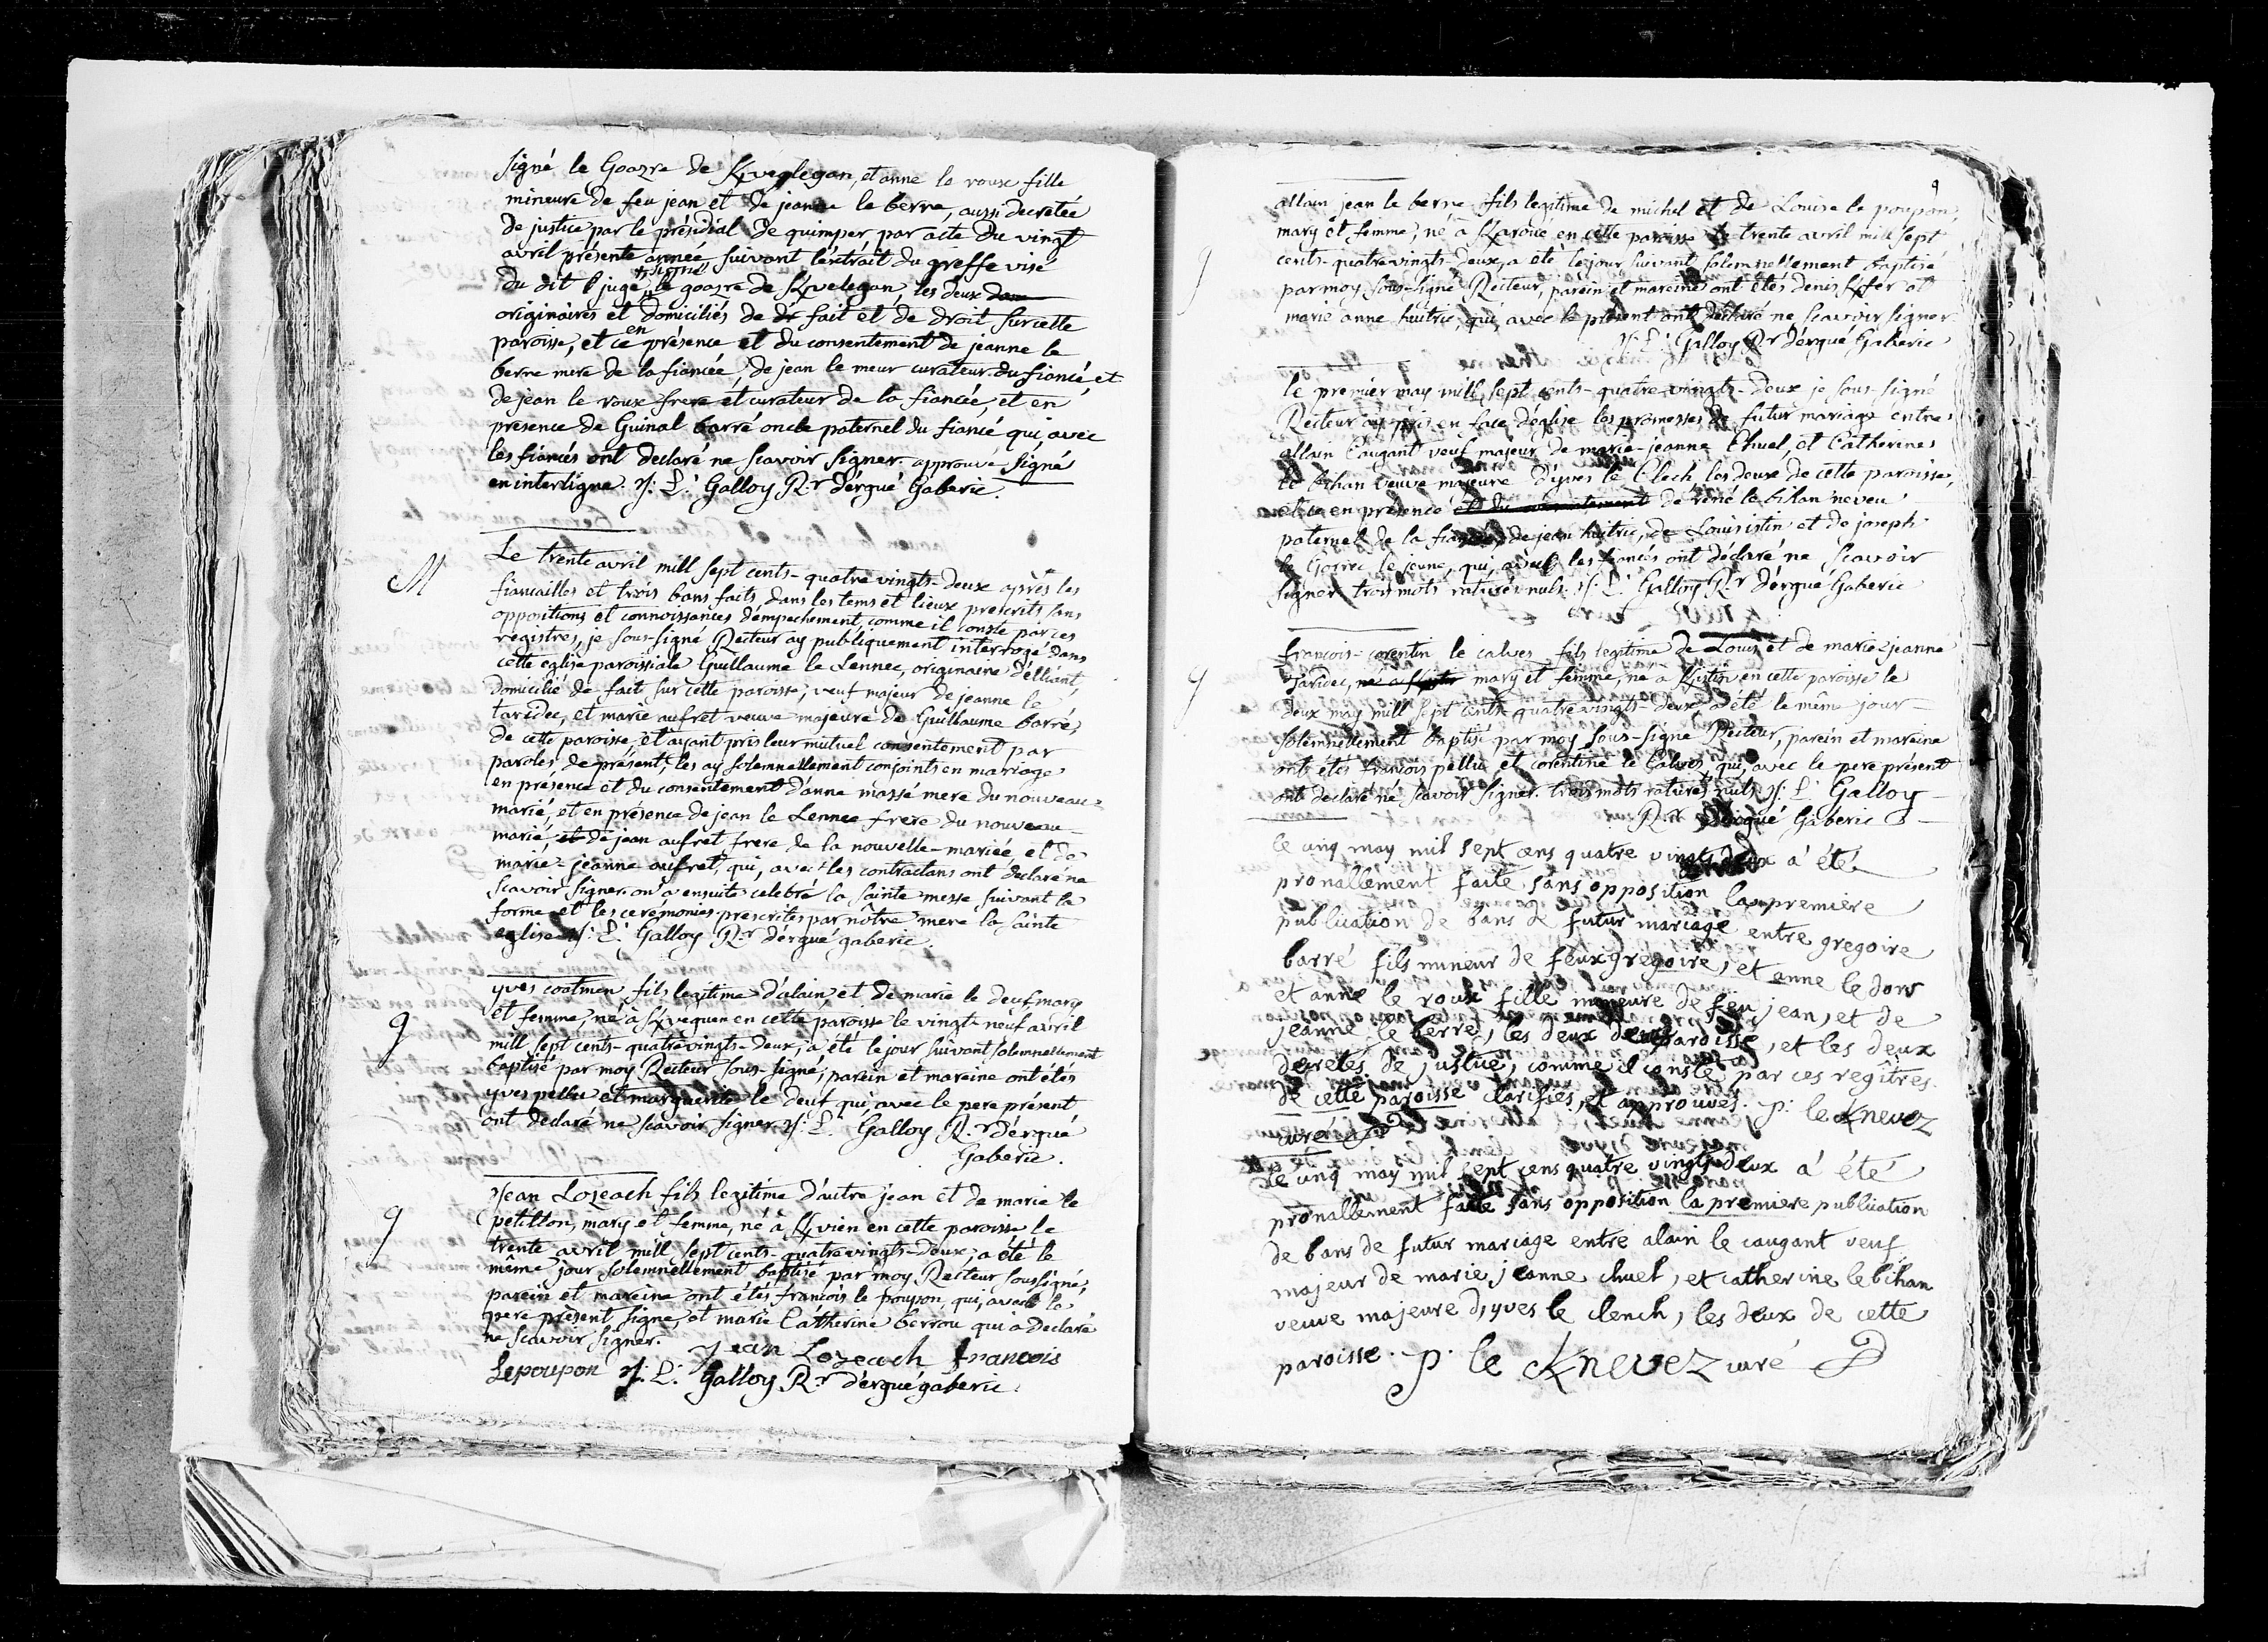 signé le Goazre de Kvelegan, et anne le roux fille
mineure de feu jean et de jeanne le berre, aussi decretée
de justice par le présidial de quimper par acte du vingt
avril présente année suivant l'extrait du greffe visé
du dit juge, signé le goazre de Kvelegan, les deux
originaires et domiciliés de dr fait et de droit sur cette
paroisse, et ce en présence et du consentement de jeanne le
berre mere de la fiancée, de jean le meur curateur du fiancé, et
de jean le roux frere et curateur de la fiancée, et en
présence de Guinal barré oncle paternel du fiancé qui, avec
les fiancés ont declaré ne scavoir signer. approuvé signé
en interligne. J: L: Galloy R.r d'ergué Gaberic.
M
Le trente avril mill sept cents-quatre vingts-deux après les
fiancailles et trois bans faits, dans les tems et lieux prescrits sans
oppositions et connoissances d'empechement, comme il conste par ces
registres, je sous-signé Recteur ay publiquement interrogé dans
cette eglise paroissiale Guillaume le Lennec, originaire d'elliant,
domicilié de fait sur cette paroisse, veuf majeur de jeanne le
taridec, et marie aufret veuve majeure de Guillaume barré,
de cette paroisse, et ayant pris leur mutuel consentement par
paroles de présent, les ay solemnellement conjoints en mariage
en présence et du consentement d'anne massé mere du nouveau-
marié, et en présence de jean le Lennec frere du nouveau
marié, et de jean aufret frere de la nouvelle-mariée, et de
marie-jeanne aufret, qui, avec les contractans ont declaré ne
scavoir signer. on a ensuite celebré la sainte messe suivant la
forme et les ceremonies prescrites par nôtre mere la sainte
eglise J: L: Galloy R.r d'ergué gaberic.
9
yves coatmen fils legitime d'alain et de marie le deuf mary
et femme, né à Kveguen en cette paroisse le vingt-neuf avril
mill sept cents-quatre vingts-deux, a été le jour suivant solemnellement
baptisé par moy Recteur sous-signé, parein et mareine ont étés
yves pelliu et marguerite le deuf qui, avec le pere présent
ont declaré ne scavoir signer. J: L: Galloy R.r d'ergué
Gaberic.
9
Jean Lozeach fils legitime d'autre jean et de marie le
petillon, mary et femme, né à Kvien en cette paroisse le
trente avril mill sept cents-quatre vingts-deux, a été le
même jour solemnellement baptisé par moy Recteur soussigné,
parein et mareine ont étés francois le poupon, qui, avec le
pere présent signe, et marie Catherine berrou qui a declaré
ne scavoir signer. Jean Lozeach francois
Lepoupon J: L: Galloy R.r d'ergué gaberic.
9
9
allain jean le berre fils legitime de michel et de Louise le poupon,
mary et femme, né à Kraoue en cette paroisse le trente avril mill sept
cents-quatre vingts-deux, a été le jour suivant solemnellement baptisé
par moy sous-signé Recteur, parein et mareine ont étés denis et
marie anne huitric, qui avec le présent ont declaré ne scavoir signer
J: L: Galloy R.r d'ergué Gaberic
le premier may mill sept cents-quatre-vingts-deux je sous-signé
Recteur ay pris en face d'église les promesses de futur mariage entre
allain Caugant veuf majeur de marie-jeanne Chuel, et Catherine
le bihan veuve majeure d'yves le Clech, les deux de cette paroisse,
et ce en présence et du consentement de rené le bihan neveu
paternel de la fiancée, de jean huitric, de Louis istin et de joseph
le Gorrec le jeune, qui, avec les fiancés ont déclaré ne scavoir
signer trois mots raturés nuls. J: L: Galloy R.r d'ergué Gaberic
9
francois-corentin le calves fils legitime de Louis et de marie-jeanne
Taridec, mary et femme, né à en cette paroisse le
deux may mill sept cents-quatre vingts-deux, a été le même jour
solemnellement baptisé par moy sous-signé Recteur, parein et mareine
ont étés francois pelliu et corentine le Calves qui, avec le pere présent
ont declaré ne scavoir signer. trois mots raturés nuls J: L: Galloy
R.r d'ergué Gaberic
le cinq may mil sept cens quatre vingts deux a été
pronallement faite sans opposition la premiere
publication de bans de futur mariage entre gregoire
barré fils mineur de feux gregoire, et anne le dors
et anne le roux fille mineure de feu jean, et de
jeanne le berre, les deux de paroisse, et les deux
decretés de justice, comme il conste par ces regîtres.
de cette paroisse clarifiés, et approuvés. p: le Knevez
curé
le cinq may mil sept cens quatre vingts deux a été
pronallement faite sans opposition la premiere publication
de bans de futur mariage entre alain le caugant veuf
majeur de marie jeanne chuel, et catherine le bihan
veuve majeure d'yves le clench, les deux de cette
paroisse. p. le Knevez curé